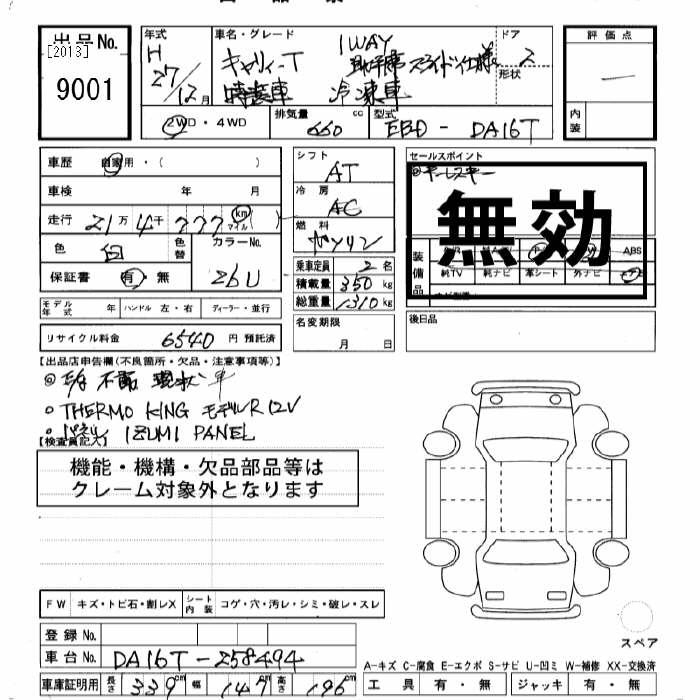 出品No.
[2013]
9001
年式
H
27/12月
車名・グレード
キャリィ-T 1WAY
助手席スライド仕様
冷凍車
ドア
2
形状
②WD・4WD
排気量
660 cc
型式
EBD - DA16T
評価点
—
内装
車歴 自家用・( )
車検 年 月
走行 21万4千777 km マイル ( )
色 白 色替 カラーNo. 26U
保証書 有・無
モデル年式 年 ハンドル 左・右 ディーラー・並行
リサイクル料金 6540 円 預託済
シフト
AT
冷房
AC
燃料
ガソリン
乗車定員 2名
積載量 350 kg
総重量 1310 kg
名変期限
月 日
セールスポイント
無効
装備品
ABS
純TV 純ナビ 革シート 外ナビ
後日品
【出品店申告欄(不良箇所・欠品・注意事項等)】
不動 現状車
○ THERMO KING モデルR 12V
IZUMI PANEL
【検査員記入】
機能・機構・欠品部品等は
クレーム対象外となります
FW キズ・トビ石・割レX シート内装 コゲ・穴・汚レ・シミ・破レ・スレ
登録No.
車台No. DA16T-258494
車庫証明用 長さ 339cm 幅 147cm 高さ 196cm
スペア
A-キズ C-腐食 E-エクボ S-サビ U-凹ミ W-補修 XX-交換済
工具 有・無 ジャッキ 有・無